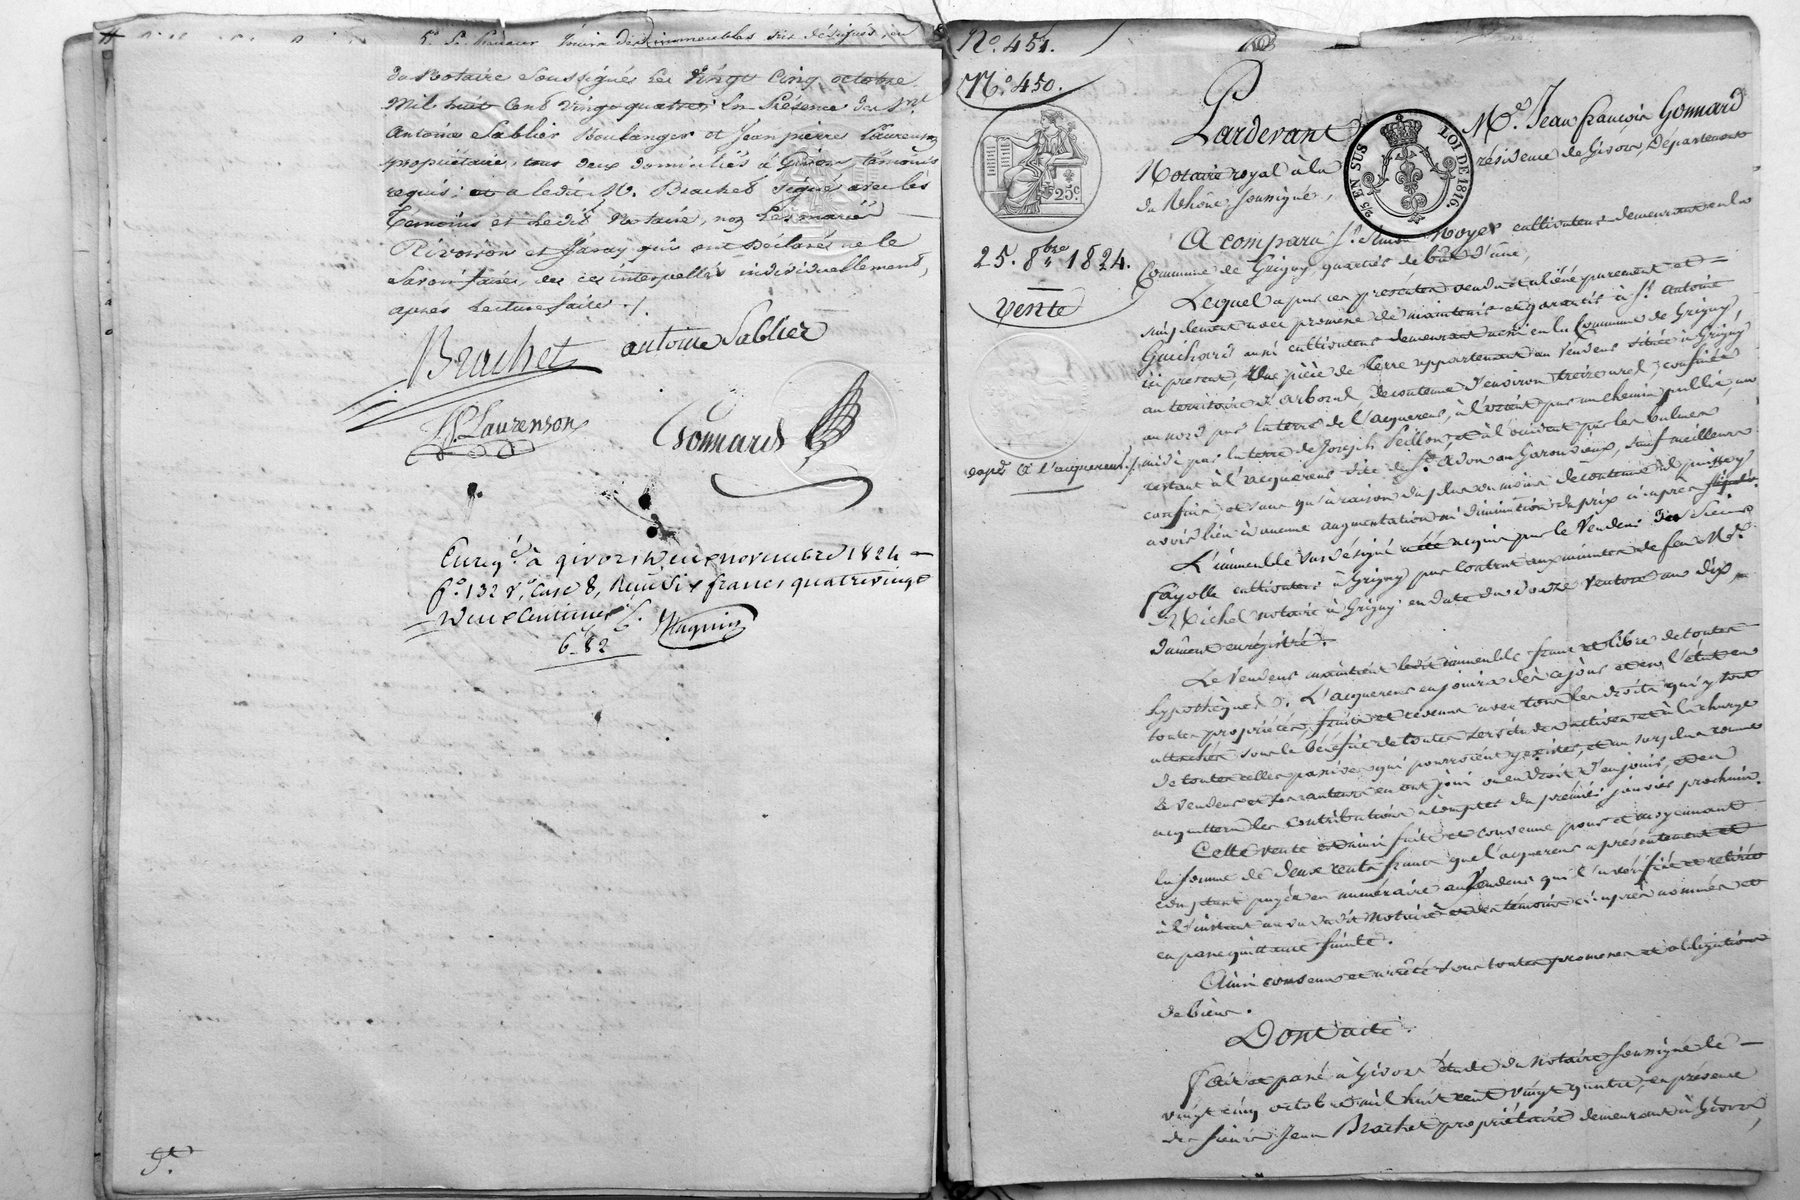 5.° Le preneur jouira des immeubles sus désignés, en
du Notaire soussigné, Le Vingt Cinq octobre
Mil huit Cent Vingt quatre; En Présence des Srs
Antoine Sablier Boulanger et Jean pierre Laurenson
propriétaire, tous deux domiciliés à Givors, témoins
requis; et a ledit Mr. Brachet signé avec les
Témoins et Ledit Notaire, non Les mariés
Rivoiron et Jaray qui ont Déclarés ne le
Savoir faire, de ce interpellés individuellement,
après Lecture faite ./.
Brachet antoine Sablier
JP. Laurenson Gonnard
Enregé. à givors le deux novembre 1824
f° 132 v°, Case 8, Reçu Six francs quatre vingt
deux Centimes
6 82 Magnin
N.° 451.
N.° 450.
25c
25. 8bre 1824.
Vente
expé. à l'acquereur ./.
25 EN SUS LOI DE 1816
Pardevant Me. Jean françois Gonnard
Notaire royal à la résidence de Givors, Département
du Rhône soussigné,
A comparu Sr. Simon Noyer cultivateur demeurant en la
Commune de Grigny quartier de
Lequel a par ces présentes vendu et aliéné purement et
simplement avec promesse de maintenir et garantir à Sr. Antoine
Guichard aussi cultivateur demeurant aussi en la Commune de Grigny,
ici présent, Une pièce de terre appartenant au Vendeur située à Grigny
au territoire d'arboud, de contenue d'environ treize ares; confinée
au nord par la terre de l'acquereur, à l'orient par un chemin public, au
midi par la terre de Joseph Peillon, et à l'occident par les balmes
restant à l'acquereur dite du Sr. Adon au Garonieux, sauf meilleurs
confins, et sans qu'à raison du plus ou moins de contenue il puisse y
avoir lieu à aucune augmentation ni diminution de prix ci-après stipulé.
L'immeuble sus désigné a été acquis par le Vendeur du Sieur
fayolle cultivateur à Grigny par Contrat aux minutes de feu Me.
Michel notaire à Grigny en date du douze Ventose an dix,
dûment enrégistré.
Le Vendeur maintient ledit immeuble franc et libre de toutes
hypothèques. L'acquereur en jouira dès ce jour et en l'état en
toute propriété, fruits et revenus avec tous les droits qui y sont
attachés sous le bénéfice de toutes servitudes actives et à la charge
de toutes celles passives qui pourroient y exister, et au surplus comme
le vendeur et ses auteurs en ont joui ou eu droit d'en jouir, et en
acquittera les contributions à compter du premier janvier prochain.
Cette vente est ainsi faite et convenue pour et moyennant
la somme de deux cents francs que l'acquereur a présentement et
comptant payée en numéraire au Vendeur qui l'a vérifiée et retirée
à l'instant au vu dudit Notaire et des témoins ci-après nommés et
en passe quittance finite.
Ainsi convenu et arrêté sous toutes promesses et obligations
de biens.
Dont acte.
Fait et passé à Givors étude du Notaire soussigné le
vingt cinq octobre mil huit cent vingt quatre, en présence
des sieurs Jean Brachet propriétaire demeurant à Givors,